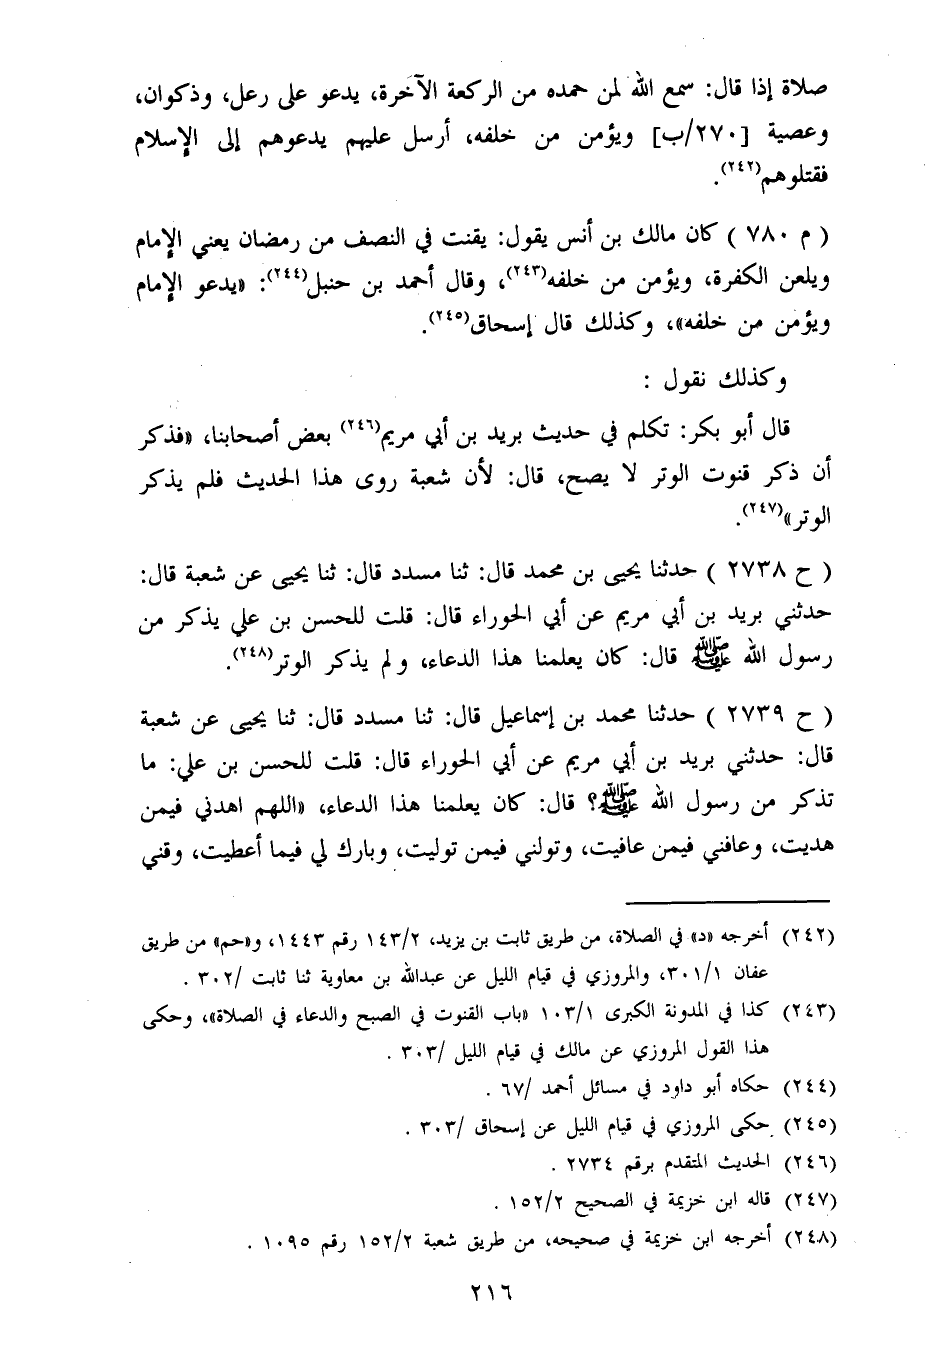 صلاة إذا قال: سمع الله لمن حمده من الركعة الآخرة، يدعو على رعل، وذكوان،
وعصية [٢٧٠/ب] ويؤمن من خلفه، أرسل عليهم يدعوهم إلى الإسلام
فقتلوهم(٢٤٢).
( م ٧٨٠ ) كان مالك بن أنس يقول: يقنت في النصف من رمضان يعني الإمام
ويلعن الكفرة، ويؤمن من خلفه(٢٤٣)، وقال أحمد بن حنبل(٢٤٤): «يدعو الإمام
ويؤمن من خلفه»، وكذلك قال إسحاق(٢٤٥).
وكذلك نقول :
قال أبو بكر: تكلم في حديث بريد بن أبي مريم(٢٤٦) بعض أصحابنا، «فذكر
أن ذكر قنوت الوتر لا يصح، قال: لأن شعبة روى هذا الحديث فلم يذكر
الوتر»(٢٤٧).
( ح ٢٧٣٨ ) حدثنا يحيى بن محمد قال: ثنا مسدد قال: ثنا يحيى عن شعبة قال:
حدثني بريد بن أبي مريم عن أبي الحوراء قال: قلت للحسن بن علي يذكر من
رسول الله ﷺ قال: كان يعلمنا هذا الدعاء، ولم يذكر الوتر(٢٤٨).
( ح ٢٧٣٩ ) حدثنا محمد بن إسماعيل قال: ثنا مسدد قال: ثنا يحيى عن شعبة
قال: حدثني بريد بن أبي مريم عن أبي الحوراء قال: قلت للحسن بن علي: ما
تذكر من رسول الله ﷺ؟ قال: كان يعلمنا هذا الدعاء، «اللهم اهدني فيمن
هديت، وعافني فيمن عافيت، وتولني فيمن توليت، وبارك لي فيما أعطيت، وقني
(٢٤٢) أخرجه «د» في الصلاة، من طريق ثابت بن يزيد، ١٤٣/٢ رقم ١٤٤٣، و«حم» من طريق
عفان ٣٠١/١، والمروزي في قيام الليل عن عبدالله بن معاوية ثنا ثابت /٣٠٢ .
(٢٤٣) كذا في المدونة الكبرى ١٠٣/١ «باب القنوت في الصبح والدعاء في الصلاة»، وحكى
هذا القول المروزي عن مالك في قيام الليل /٣٠٣ .
(٢٤٤) حكاه أبو داود في مسائل أحمد /٦٧ .
(٢٤٥) حكى المروزي في قيام الليل عن إسحاق /٣٠٣ .
(٢٤٦) الحديث المتقدم برقم ٢٧٣٤ .
(٢٤٧) قاله ابن خزيمة في الصحيح ١٥٢/٢ .
(٢٤٨) أخرجه ابن خزيمة في صحيحه، من طريق شعبة ١٥٢/٢ رقم ١٠٩٥ .
٢١٦